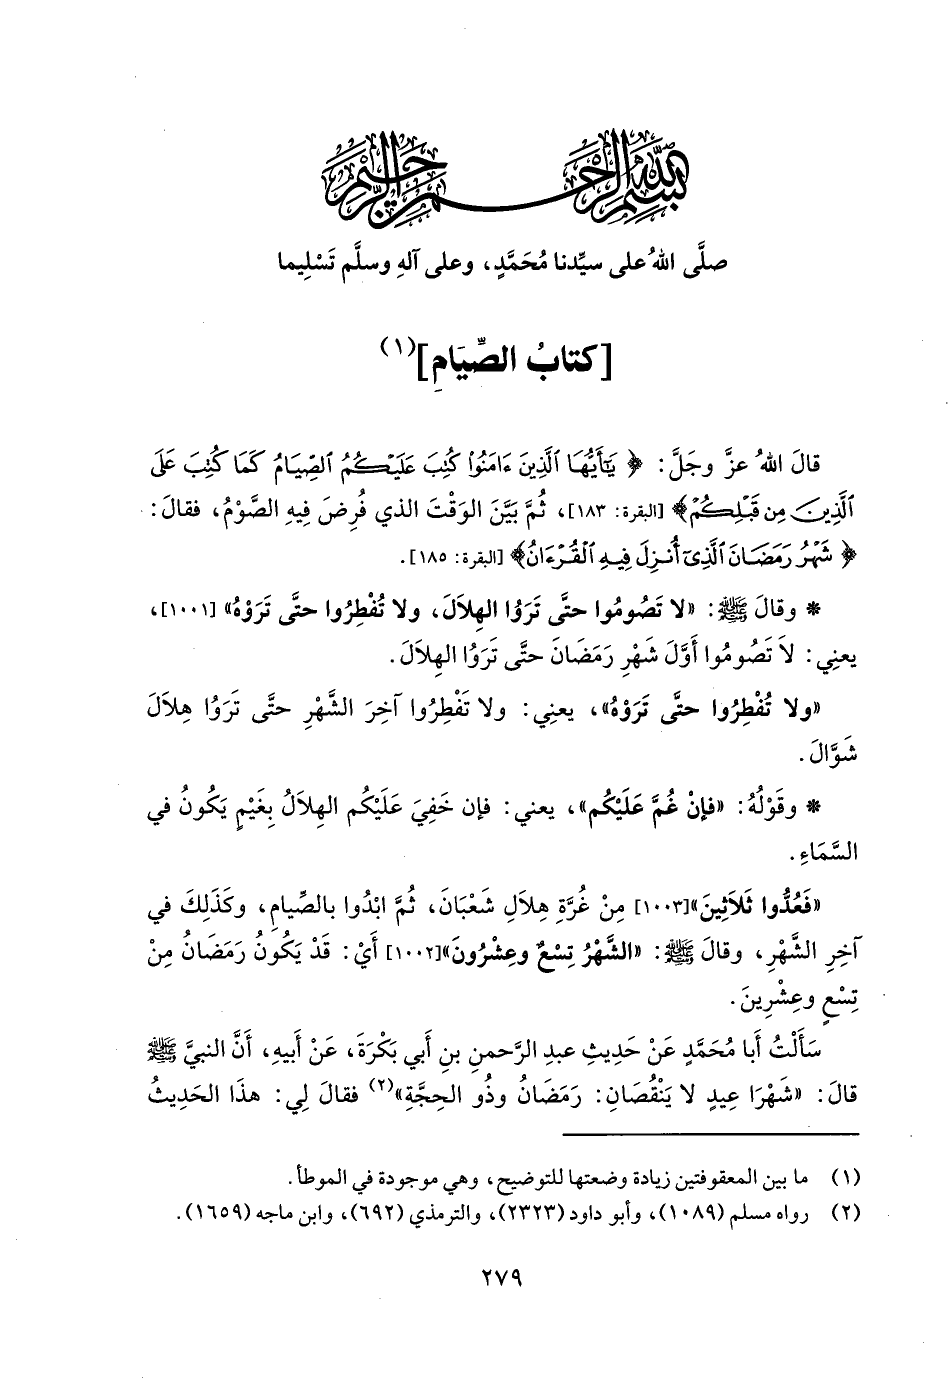 بسم الله الرحمن الرحيم
صلَّى اللهُ على سيِّدنا مُحَمَّدٍ، وعلى آلهِ وسلَّم تَسْلِيما
[كتابُ الصِّيَامِ](١)
قالَ اللهُ عزَّ وجَلَّ: ﴿يَٰٓأَيُّهَا ٱلَّذِينَ ءَامَنُوا۟ كُتِبَ عَلَيْكُمُ ٱلصِّيَامُ كَمَا كُتِبَ عَلَى
ٱلَّذِينَ مِن قَبْلِكُمْ﴾ [البقرة: ١٨٣]، ثُمَّ بَيَّنَ الوَقْتَ الذي فُرِضَ فيهِ الصَّوْمُ، فقالَ:
﴿شَهْرُ رَمَضَانَ ٱلَّذِىٓ أُنزِلَ فِيهِ ٱلْقُرْءَانُ﴾ [البقرة: ١٨٥].
* وقالَ ﷺ: «لا تَصُومُوا حتَّى تَرَوُا الهِلاَلَ، ولا تُفْطِرُوا حتَّى تَرَوْهُ» [١٠٠١]،
يعنِي: لاَ تَصُومُوا أوَّلَ شَهْرِ رَمَضَانَ حتَّى تَرَوُا الهِلاَلَ.
«ولا تُفْطِرُوا حتَّى تَرَوْهُ»، يعنِي: ولا تَفْطِرُوا آخِرَ الشَّهْرِ حتَّى تَرَوُا هِلاَلَ
شَوَّالَ.
* وقَوْلُهُ: «فإنْ غُمَّ عَلَيْكُم»، يعني: فإن خَفِيَ عَلَيْكُم الهِلاَلُ بِغَيْمٍ يَكُونُ في
السَّمَاءِ.
«فَعُدُّوا ثَلاَثِينَ»[١٠٠٣] مِنْ غُرَّةِ هِلاَلِ شَعْبَانَ، ثُمَّ ابْدُوا بالصِّيامِ، وكَذَلِكَ في
آخِرِ الشَّهْرِ، وقالَ ﷺ: «الشَّهْرُ تِسْعٌ وعِشْرُونَ»[١٠٠٢] أيْ: قَدْ يَكُونُ رَمَضَانُ مِنْ
تِسْعٍ وعِشْرِينَ.
سَأَلْتُ أبا مُحَمَّدٍ عَنْ حَدِيثِ عبدِ الرَّحمنِ بنِ أبي بَكْرَةَ، عَنْ أَبيهِ، أنَّ النبيَّ ﷺ
قالَ: «شَهْرَا عِيدٍ لا يَنْقُصَانِ: رَمَضَانُ وذُو الحِجَّةِ»(٢) فقالَ لِي: هذَا الحَدِيثُ
(١) ما بين المعقوفتين زيادة وضعتها للتوضيح، وهي موجودة في الموطأ.
(٢) رواه مسلم (١٠٨٩)، وأبو داود (٢٣٢٣)، والترمذي (٦٩٢)، وابن ماجه (١٦٥٩).
٢٧٩